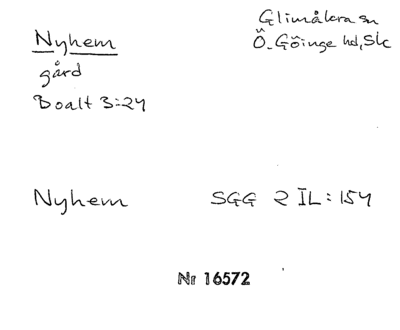 Nyhem
gård
Boalt 3:24
Glimåkra sn
Ö. Göinge hd, Sk
Nyhem
SGG 2 IL: 154
Nr 16572